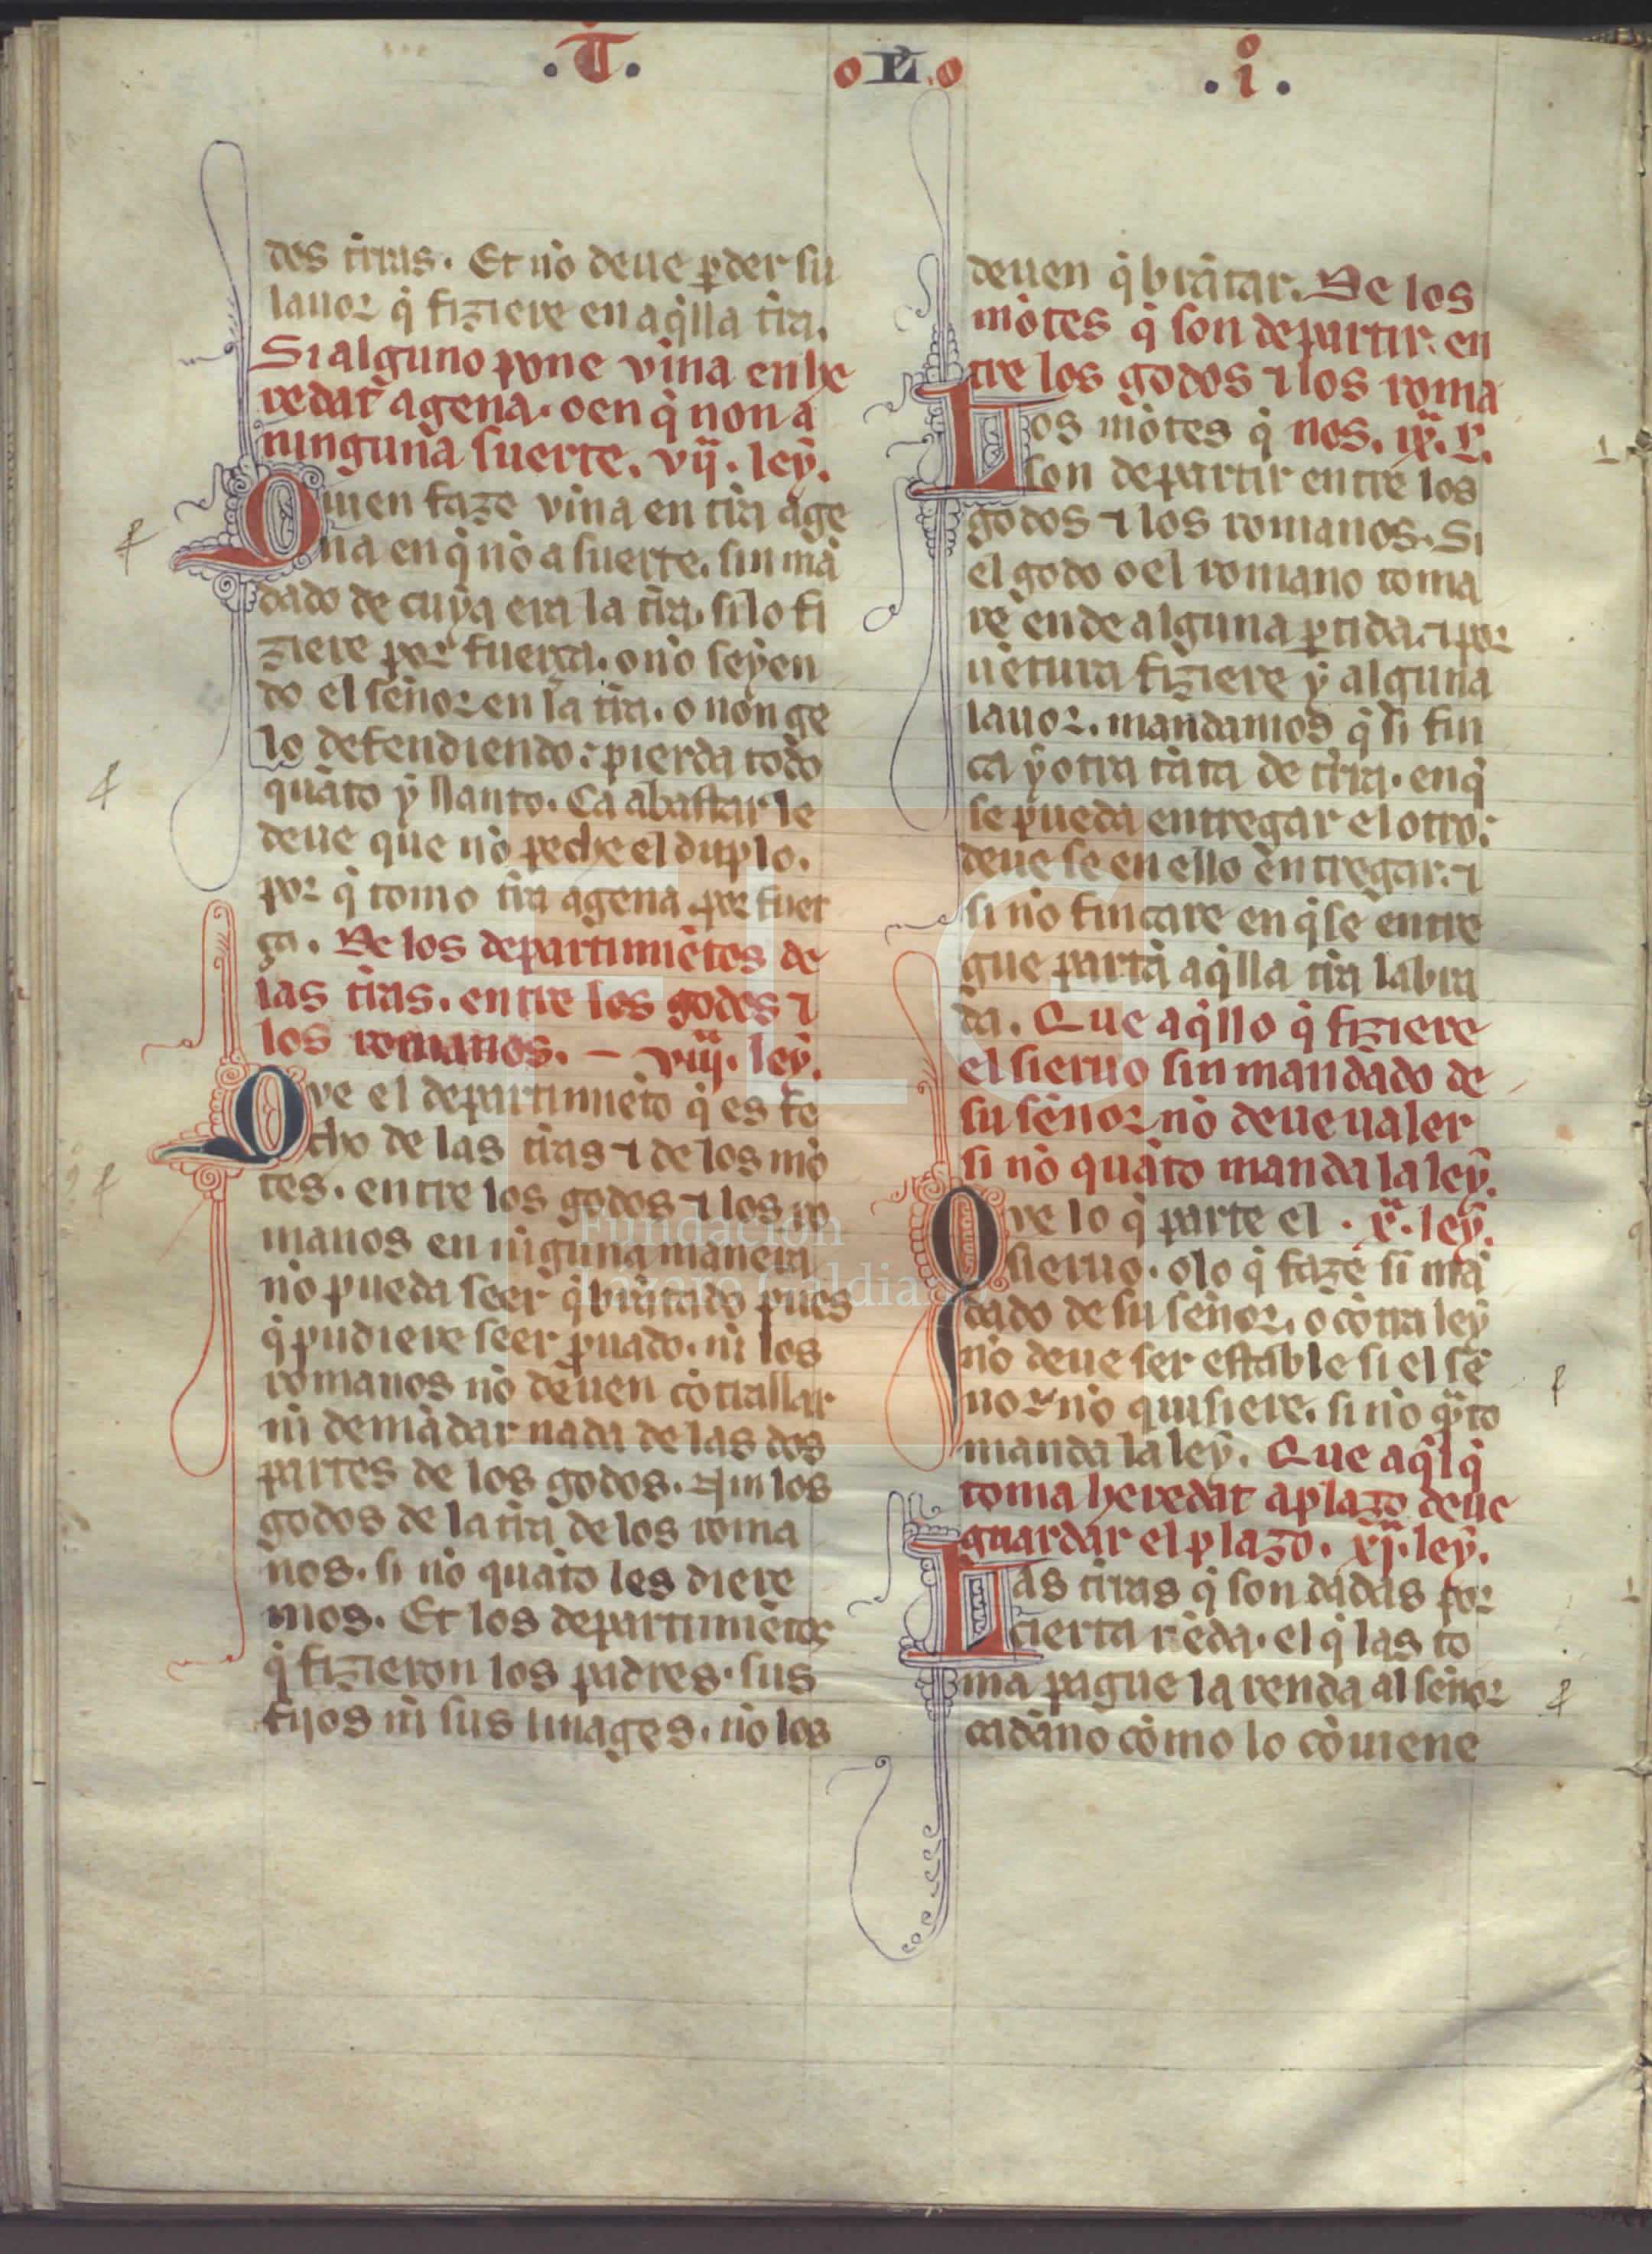 .T. o L .o .i.
des tr̃ras. Et nõ deue ꝑder su
lauor q̃ fiziere en aq̃lla tr̃ra.
Si alguno pone vina en he
redat agena. o en q̃ non a
ninguna suerte. vij. ley.
Quien faze vina en tr̃ra age
na en q̃ nõ a suerte. sin mã
dado de cuya era la tr̃ra. si lo fi
ziere por fuerça. o nõ seyen
do el señor en la tr̃ra. o non ge
lo defendiendo: pierda todo
quãto y llanto. Ca abastar le
deue que nõ peche el duplo.
por q̃ tomo tr̃ra agena por fuer
ça. De los departimiẽtos de
las tr̃ras. entre los godos ⁊
los romanos. — viij. ley.
Qve el departimiẽto q̃ es fe
cho de las tr̃ras ⁊ de los mõ
tes. entre los godos ⁊ los ro
manos en ninguna manera
nõ pueda seer q̃brãtado pues
q̃ pudiere seer ꝓuado. ni los
romanos nõ deuen cõtrallar
ni demãdar nada de las dos
partes de los godos. ⁊ nin los
godos de la tr̃ra de los roma
nos. si nõ quãto les diere
mos. Et los departimiẽtos
q̃ fizieron los padres. sus
fijos ni sus linages. nõ los
deuen q̃brãtar. De los
mõtes q̃ son de partir. en
tre los godos ⁊ los roma
Los mõtes q̃ nos. ix. L.
son de partir entre los
godos ⁊ los romanos. Si
el godo o el romano toma
re ende alguna ꝑtida. ⁊ por
uẽtura fiziere y alguna
lauor. mandamos q̃ si fin
ca y otra tãta de tr̃ra. en q̃
se pueda entregar el otro:
deue se en ello entregar. ⁊
si nõ fincare en q̃ se entre
gue partã aq̃lla tr̃ra labra
da. Que aq̃llo q̃ fiziere
el sieruo sin mandado de
su señor nõ deue ualer
si nõ quãto manda la ley.
Qve lo q̃ parte el . x. ley.
sieruo. o lo q̃ faze si mã
dado de su señor. o cõtra ley
nõ deue ser estable si el se
ñor nõ quisiere. si nõ quãto
manda la ley. Que aq̃l q̃
toma heredat a plazo deue
guardar el plazo. xj. ley.
Las tr̃ras q̃ son dadas por
cierta rẽda. el q̃ las to
ma pague la renda al señor
cadãno cõmo lo cõuiene
Fundación
Lázaro Galdiano